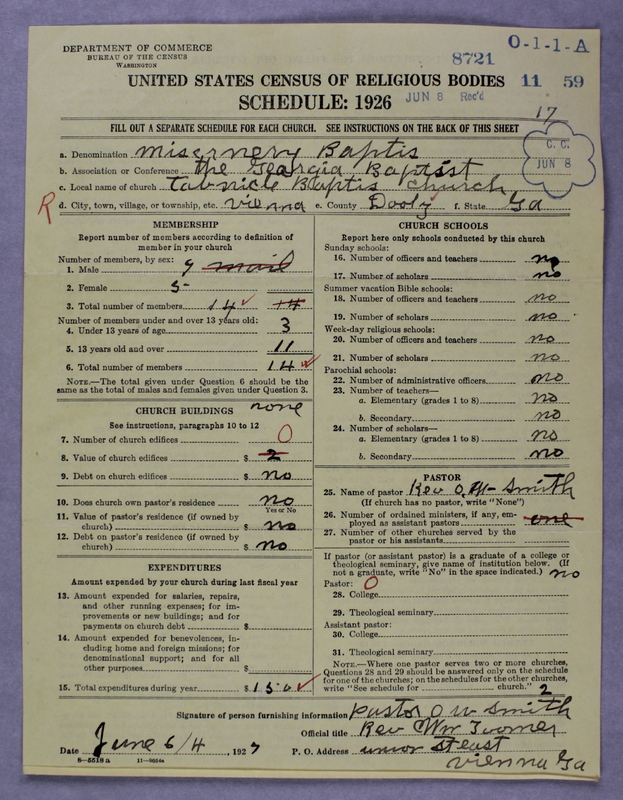 DEPARTMENT OF COMMERCE
BUREAU OF THE CENSUS
WASHINGTON
8721
O-1-1-A
UNITED STATES CENSUS OF RELIGIOUS BODIES 11 59
SCHEDULE: 1926 JUN 8 Rec'd
17
FILL OUT A SEPARATE SCHEDULE FOR EACH CHURCH. SEE INSTRUCTIONS ON THE BACK OF THIS SHEET
C. C.
JUN 8
a. Denomination misernery Baptis
b. Association or Conference the Geargia Baptist
c. Local name of church tabnicle Baptis church
R
d. City, town, village, or township, etc. vienna e. County Dooly f. State Ga
MEMBERSHIP
Report number of members according to definition of
member in your church
Number of members, by sex:
1. Male 9 mail
2. Female 5
3. Total number of members 14 14
Number of members under and over 13 years old:
4. Under 13 years of age 3
5. 13 years old and over 11
6. Total number of members 14
NOTE.—The total given under Question 6 should be the
same as the total of males and females given under Question 3.
CHURCH BUILDINGS none
See instructions, paragraphs 10 to 12
7. Number of church edifices 0
8. Value of church edifices $ 2
9. Debt on church edifices $ no
10. Does church own pastor's residence no
Yes or No
11. Value of pastor's residence (if owned by
church) $ no
12. Debt on pastor's residence (if owned by
church) $ no
EXPENDITURES
Amount expended by your church during last fiscal year
13. Amount expended for salaries, repairs,
and other running expenses; for im-
provements or new buildings; and for
payments on church debt $
14. Amount expended for benevolences, in-
cluding home and foreign missions; for
denominational support; and for all
other purposes $
15. Total expenditures during year $ 150
CHURCH SCHOOLS
Report here only schools conducted by this church
Sunday schools:
16. Number of officers and teachers no
17. Number of scholars no
Summer vacation Bible schools:
18. Number of officers and teachers no
19. Number of scholars no
Week-day religious schools:
20. Number of officers and teachers no
21. Number of scholars no
Parochial schools:
22. Number of administrative officers no
23. Number of teachers—
a. Elementary (grades 1 to 8) no
b. Secondary no
24. Number of scholars—
a. Elementary (grades 1 to 8) no
b. Secondary no
PASTOR
25. Name of pastor Rev O. W. Smith
(If church has no pastor, write "None")
26. Number of ordained ministers, if any, em-
ployed as assistant pastors one
27. Number of other churches served by the
pastor or his assistants
If pastor (or assistant pastor) is a graduate of a college or
theological seminary, give name of institution below. (If
not a graduate, write "No" in the space indicated.) no
Pastor: 0
28. College
29. Theological seminary
Assistant pastor:
30. College
31. Theological seminary
NOTE.—Where one pastor serves two or more churches,
Questions 28 and 29 should be answered only on the schedule
for one of the churches; on the schedules for the other churches,
write "See schedule for church." 2
Signature of person furnishing information Pastor O W Smith
Official title Rev Wm Toomer
Date June 6/4, 1927 P. O. Address union St east
vienna Ga
8—5518 a